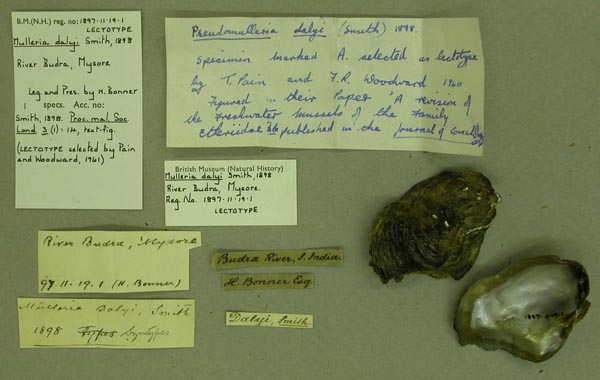 B.M.(N.H.) reg. no: 1897·11·19·1
LECTOTYPE
Mulleria dalyi Smith, 1898
River Budra, Mysore
Leg. and Pres. by H. Bonner
1 specs. Acc. no:
Smith, 1898. Proc. mal. Soc.
Lond. 3 (1): 14, text-fig.
(LECTOTYPE selected by Pain
and Woodward, 1961)
Pseudomulleria dalyi (Smith) 1898.
Specimen marked A. selected as lectotype
by T. Pain and F.R. Woodward 1960
Figured in their Paper 'A revision of
the Freshwater mussels of the Family
Etheriidae' published in the Journal of
British Museum (Natural History)
Mulleria dalyi Smith, 1898
River Budra, Mysore.
Reg. No. 1897·11·19·1
LECTOTYPE
River Budra, Mysore
97.11.19.1 (H. Bonner)
Mulleria Dalyi, Smith
1898 Types Syntypes
Budra River, S. India.
H. Bonner Esq
Dalyi, Smith.
1897·11·19·1